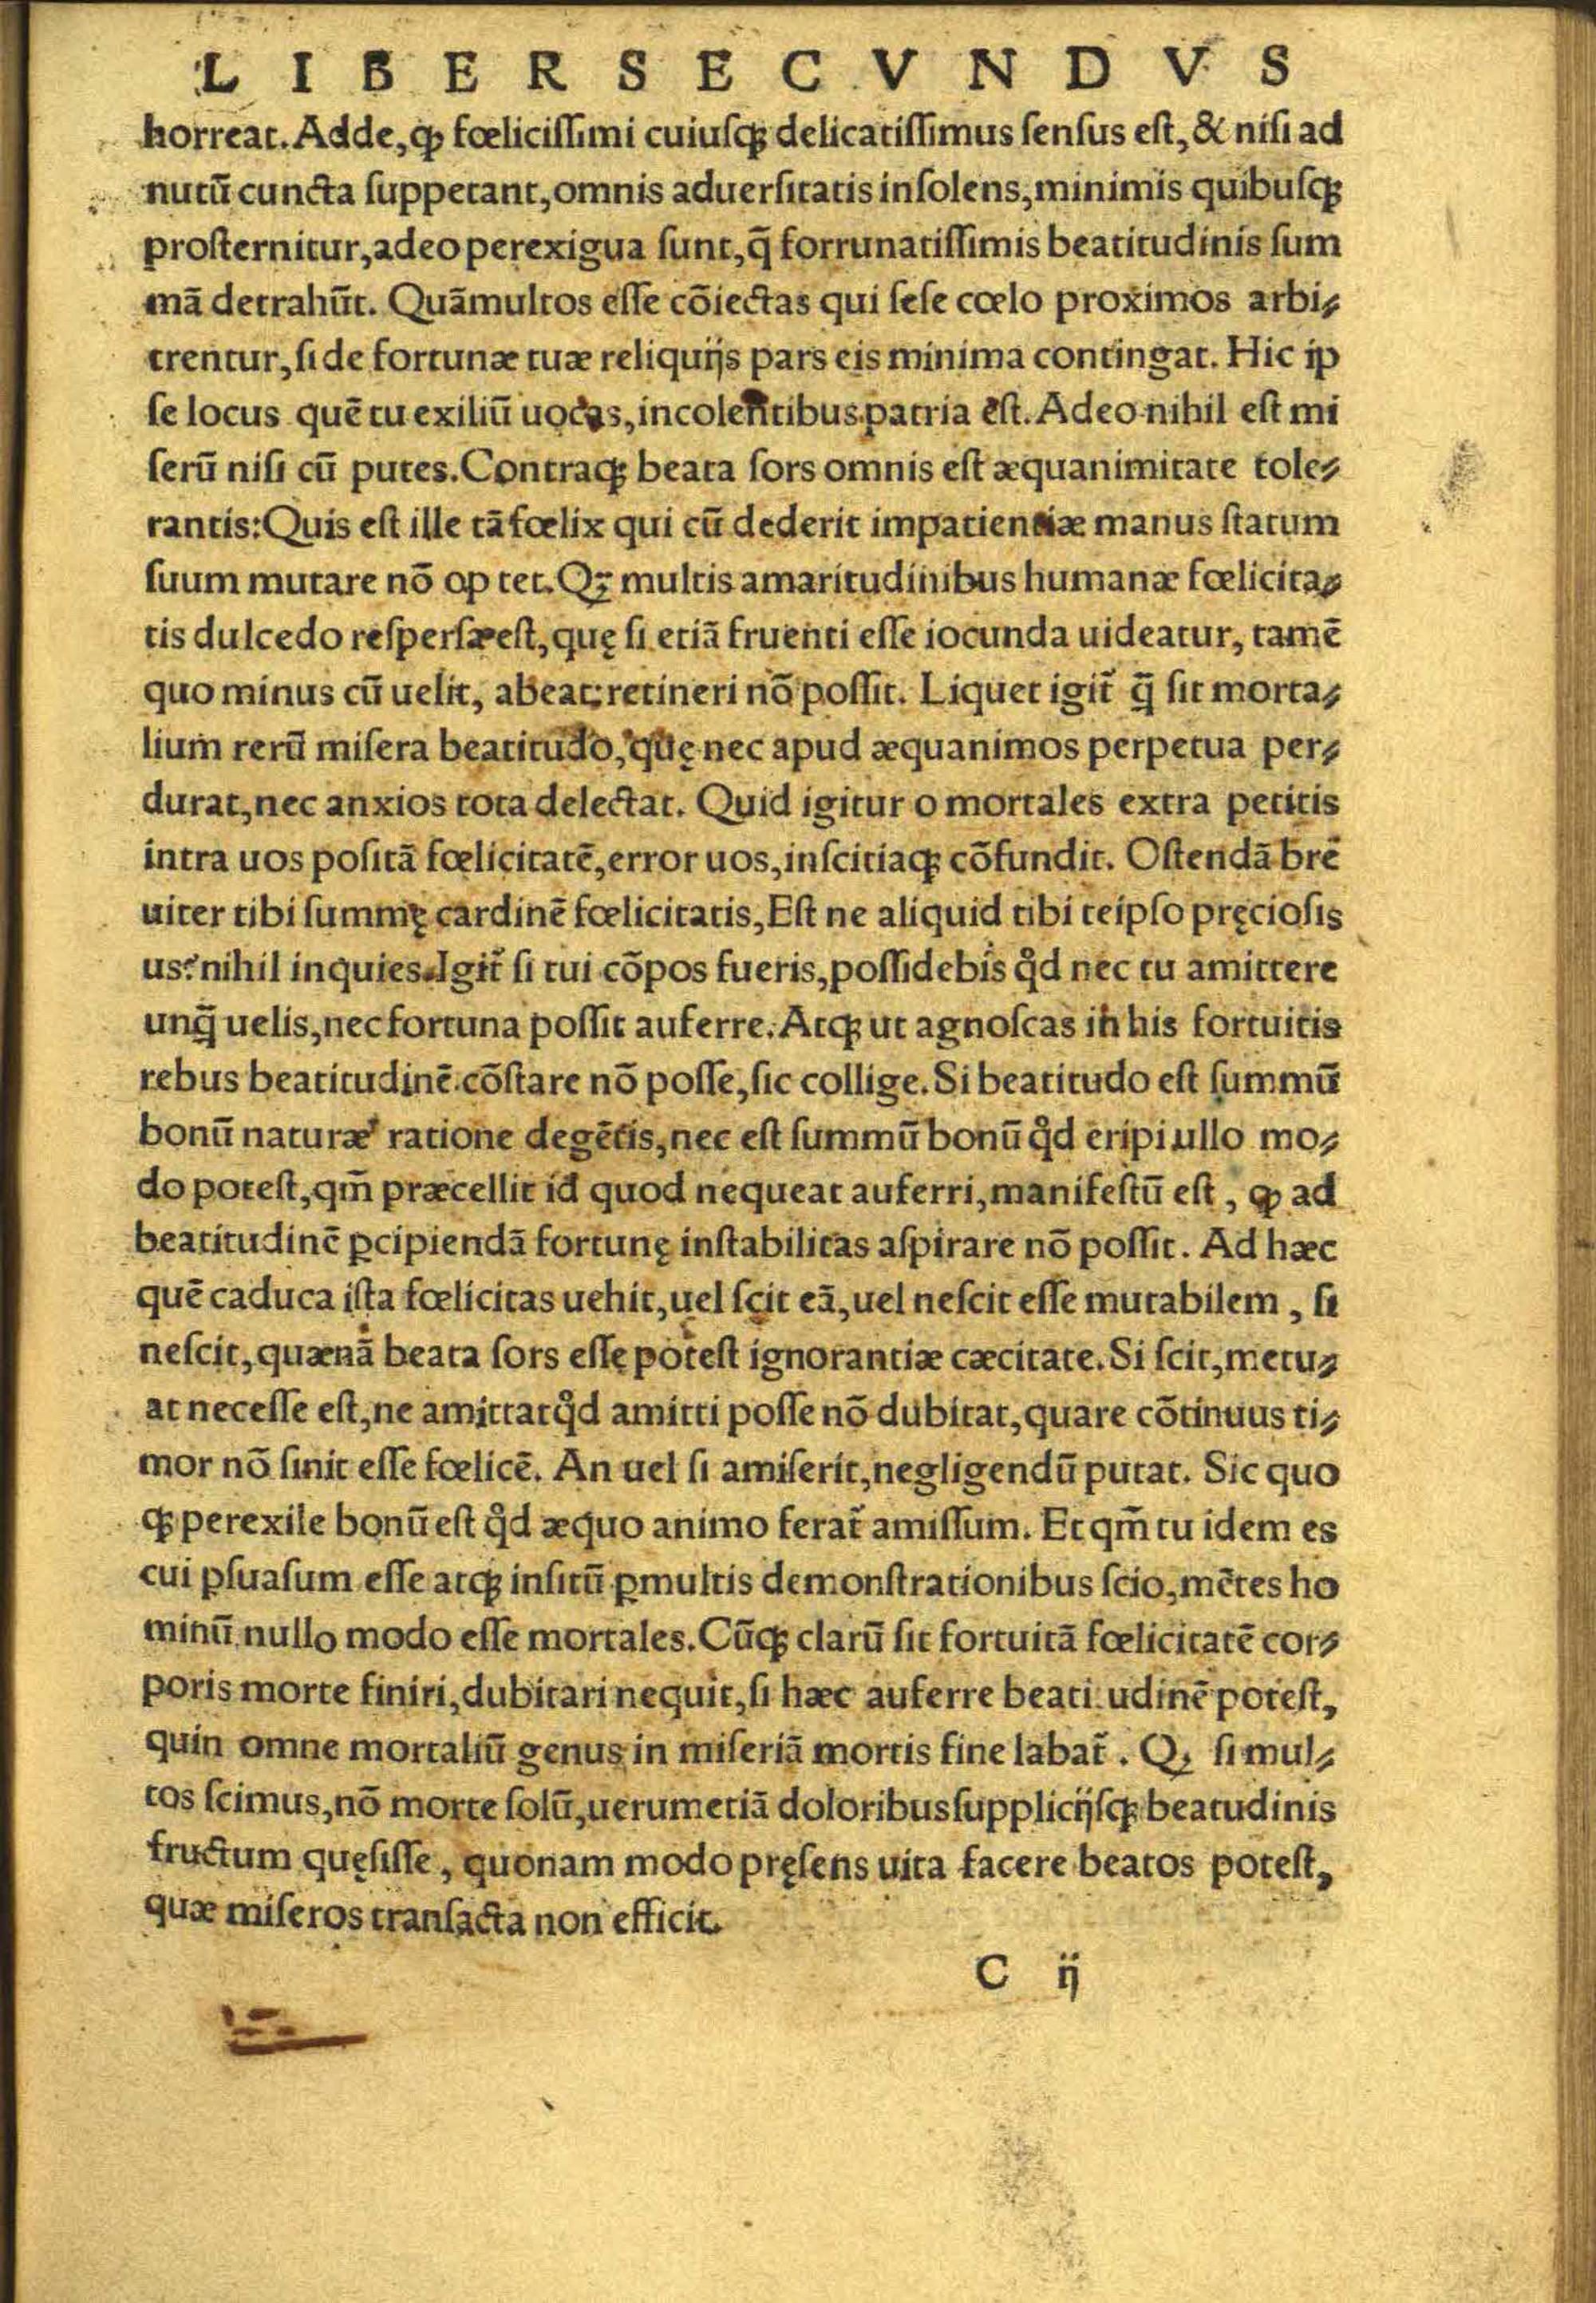 LIBER SECVNDVS
horreat. Adde, ꝙ fœliciſſimi cuiuſqꝫ delicatiſſimus ſenſus eſt, & niſi ad
nutũ cuncta ſuppetant, omnis aduerſitatis inſolens, minimis quibuſqꝫ
proſternitur, adeo perexigua ſunt, q̃ forrunatiſſimis beatitudinis ſum
mã detrahũt. Quãmultos eſſe cõiectas qui ſeſe cœlo proximos arbi⸗
trentur, ſi de fortunæ tuæ reliquijs pars eis minima contingat. Hic ip
ſe locus quẽ tu exiliũ uocas, incolentibus patria eſt. Adeo nihil eſt mi
ſerũ niſi cũ putes. Contraqꝫ beata ſors omnis eſt æquanimitate tole⸗
rantis: Quis eſt ille tã fœlix qui cũ dederit impatientiæ manus ſtatum
ſuum mutare nõ op tet. Qꝫ multis amaritudinibus humanæ fœlicita⸗
tis dulcedo reſperſa eſt, quę ſi etiã fruenti eſſe iocunda uideatur, tamẽ
quo minus cũ uelit, abeat; retineri nõ poſſit. Liquet igit̃ q̃ ſit morta⸗
lium rerũ miſera beatitudo, quę nec apud æquanimos perpetua per⸗
durat, nec anxios tota delectat. Quid igitur o mortales extra petitis
intra uos poſitã fœlicitatẽ, error uos, inſcitiaqꝫ cõfundit. Oſtendã bre
uiter tibi summę cardinẽ fœlicitatis, Eſt ne aliquid tibi teipſo pręcioſis
us? nihil inquies. Igit̃ ſi tui cõpos fueris, poſſidebis qd̛ nec tu amittere
unq̃ uelis, nec fortuna poſſit auferre. Atqꝫ ut agnoſcas in his fortuitis
rebus beatitudinẽ cõſtare nõ poſſe, ſic collige. Si beatitudo eſt ſummũ
bonũ naturæ ratione degẽtis, nec eſt ſummũ bonũ qd̛ eripi ullo mo⸗
do poteſt, qm̃ præcellit id quod nequeat auferri, manifeſtũ eſt, ꝙ ad
beatitudinẽ ꝑcipiendã fortunę inſtabilitas aſpirare nõ poſſit. Ad hæc
quẽ caduca iſta fœlicitas uehit, uel ſcit eã, uel neſcit eſſe mutabilem, ſi
neſcit, quænã beata ſors eſſe poteſt ignorantiæ cæcitate. Si ſcit, metu⸗
at neceſſe eſt, ne amittat qd̛ amitti poſſe nõ dubitat, quare cõtinuus ti⸗
mor nõ ſinit eſſe fœlicẽ. An uel ſi amiſerit, negligendũ putat. Sic quo
qꝫ perexile bonũ eſt qd̛ æquo animo ferat̃ amiſſum. Et qm̃ tu idem es
cui ꝑſuaſum eſſe atqꝫ inſitũ ꝑmultis demonſtrationibus ſcio, mẽtes ho
minũ nullo modo eſſe mortales. Cũqꝫ clarũ ſit fortuitã fœlicitatẽ cor⸗
poris morte finiri, dubitari nequit, ſi hæc auferre beati udinẽ poteſt,
quin omne mortaliũ genus in miſeriã mortis fine labat̃. Qꝫ ſi mul⸗
tos ſcimus, nõ morte ſolũ, uerumetiã doloribus ſupplicijſqꝫ beatudinis
fructum quęſiſſe, quonam modo pręſens uita facere beatos poteſt,
quæ miſeros tranſacta non efficit.
C ij